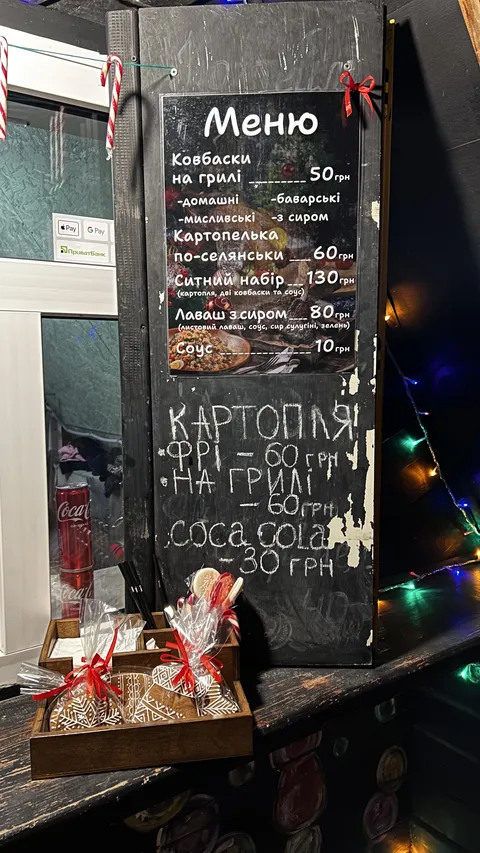 Меню
Ковбаски
на грилі 50грн
-домашні -баварські
-мисливські -з сиром
Картопелька
по-селянськи 60грн
Ситний набір 130грн
(картопля, дві ковбаски та соус)
Лаваш з сиром 80грн
(листовий лаваш, соус, сир сулугіні, зелень)
Соус 10грн
КАРТОПЛЯ
ФРІ - 60 ГРН
НА ГРИЛІ
- 60 ГРН
COCA COLA
- 30 ГРН
Pay G Pay
ПриватБанк
Coca
Coca